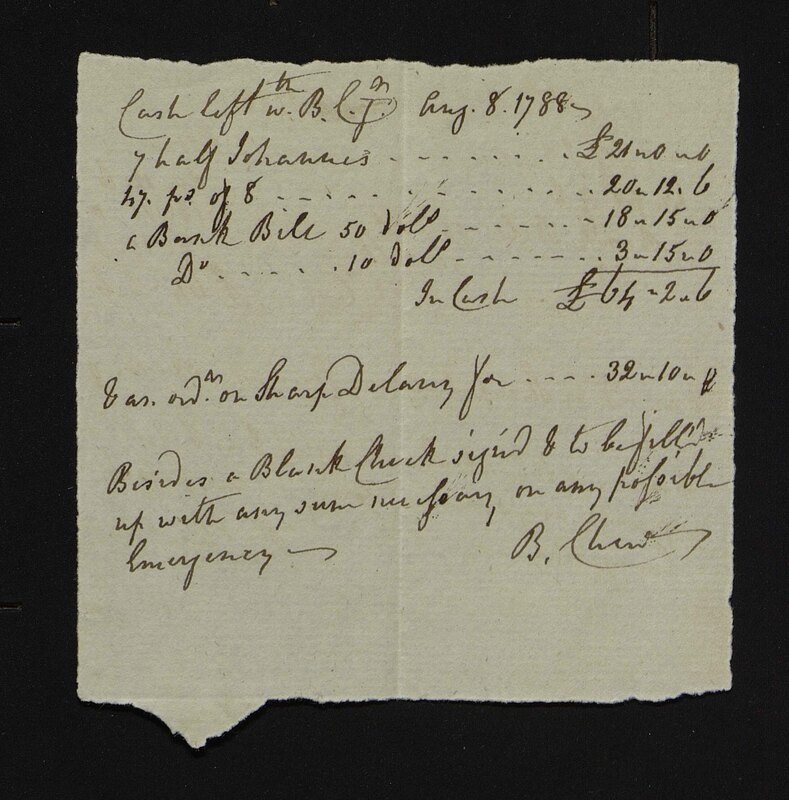 Cash left wth. B. C. Jn Aug. 8. 1788
7 half Johannes - - - - - - - £21 " 0 " 0
ps. of 8 - - - - - - - - - - 20 " 12 " 6
a Bank Bill 50 Doll - - - - - - 18 " 15 " 0
Do - - - - - 10 Doll - - - - - - 3 " 15 " 0
In Cash £64 " 2 " 6
& an ordr. on Sharp Delany for - - - - 32 " 10 " 0
Besides a Blank Check sign'd & to be fill'd
up with any sum necessary, on any possible
Emergency
B. Chew